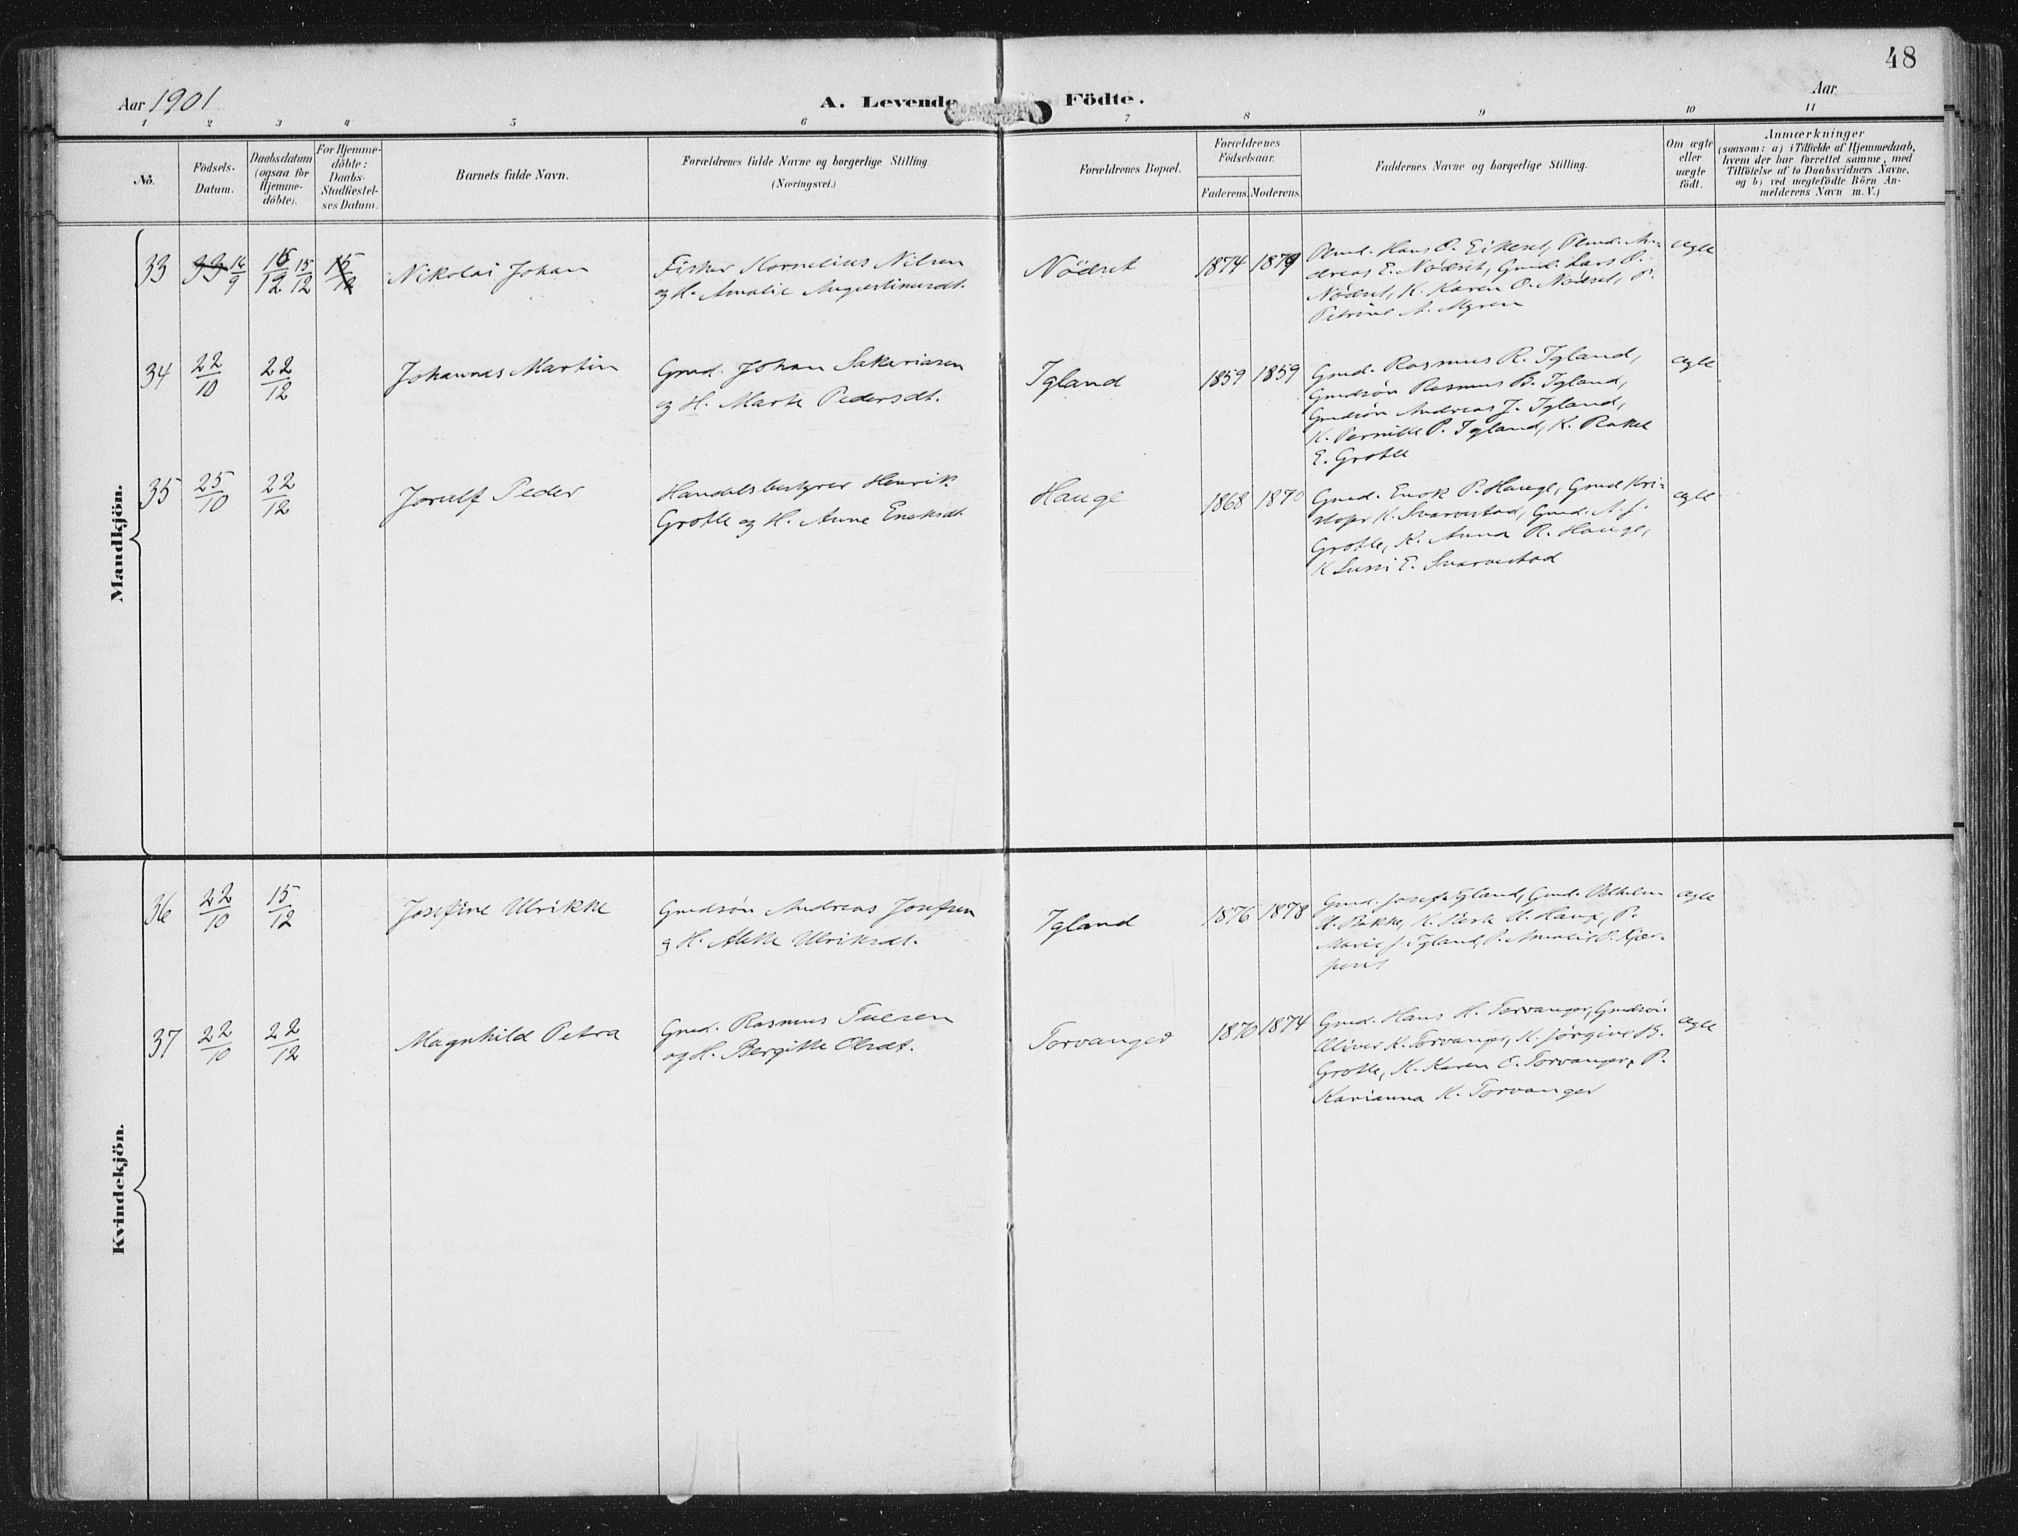 48
Aar 1901
A. Levende Födte.
Aar
1 2 3 4 5 6 7 8 9 10 11
No.
Födsels-
Datum.
Daabsdatum
(ogsaa for
Hjemme-
döbte).
For Hjemme-
döbte:
Daabs-
Stadfæstel-
ses Datum.
Barnets fulde Navn.
Forældrenes fulde Navne og borgerlige Stilling
(Næringsvei.)
Forældrenes Bopæl.
Forældrenes
Födselsaar.
Faderens. Moderens.
Faddernes Navne og borgerlige Stilling.
Om ægte
eller
uægte
født.
Anmærkninger
(saasom: a) i Tilfælde af Hjemmedaab,
hvem der har forrettet samme, med
Tilföielse af to Daabsvidners Navne,
og b) ved uægtefödte Börn An-
melderens Navn m. V.)
Mandkjön.
33 16/9 15/12 Nikolai Johan
Fisker Kornelius Nilsen
og H. Amalie Augustinusdt.
Nödset 1874 1879
Pmd. Hans O. Eikeset, Pmd. An-
dreas E. Nödset, Gmd. Lars P.
Nödset, K. Karen O. Nödset, P.
Petrine A. Myren
ægte
34 22/10 22/12 Johannes Martin
Gmd. Johan Sakariasen
og H. Marte Pedersdt.
Igland 1859 1859
Gmd. Rasmus R. Igland,
Gmdsön Rasmus B. Igland,
Gmdsön Andreas J. Igland,
K. Pernille P. Igland, K. Rakel
E. Grotle
ægte
35 25/10 22/12 Jorulf Peder
Handelsbestyrer Henrik
Grotle og H. Anne Enoksdt.
Hauge 1868 1870
Gmd. Enok P. Hauge, Gmd. Kri-
stofer K. Svarvestad, Gmd. A. J.
Grotle, K. Anna R. Hauge,
K. Lussi E. Svarvestad
ægte
Kvindekjön.
36 22/10 15/12 Josefine Ulrikke
Gmdsön Andreas Josefsen
og H. Alette Ulriksdt.
Igland 1876 1878
Gmd. Josef Igland, Gmd. Vilhelm
U. Bakke, K. U. Hauge, P.
Marie J. Igland, P. Amalie
ægte
37 22/10 22/12 Magnhild Petra
Gmd. Rasmus
og H. Bergitte Olsdt.
Torvanger 1870 1874
Gmd. Hans H. Torvanger, Gmdsön
Oliver K. Torvanger, K. Jörgine B.
Grotle, K. Karen O. Torvanger, P.
Karianna K. Torvanger
ægte